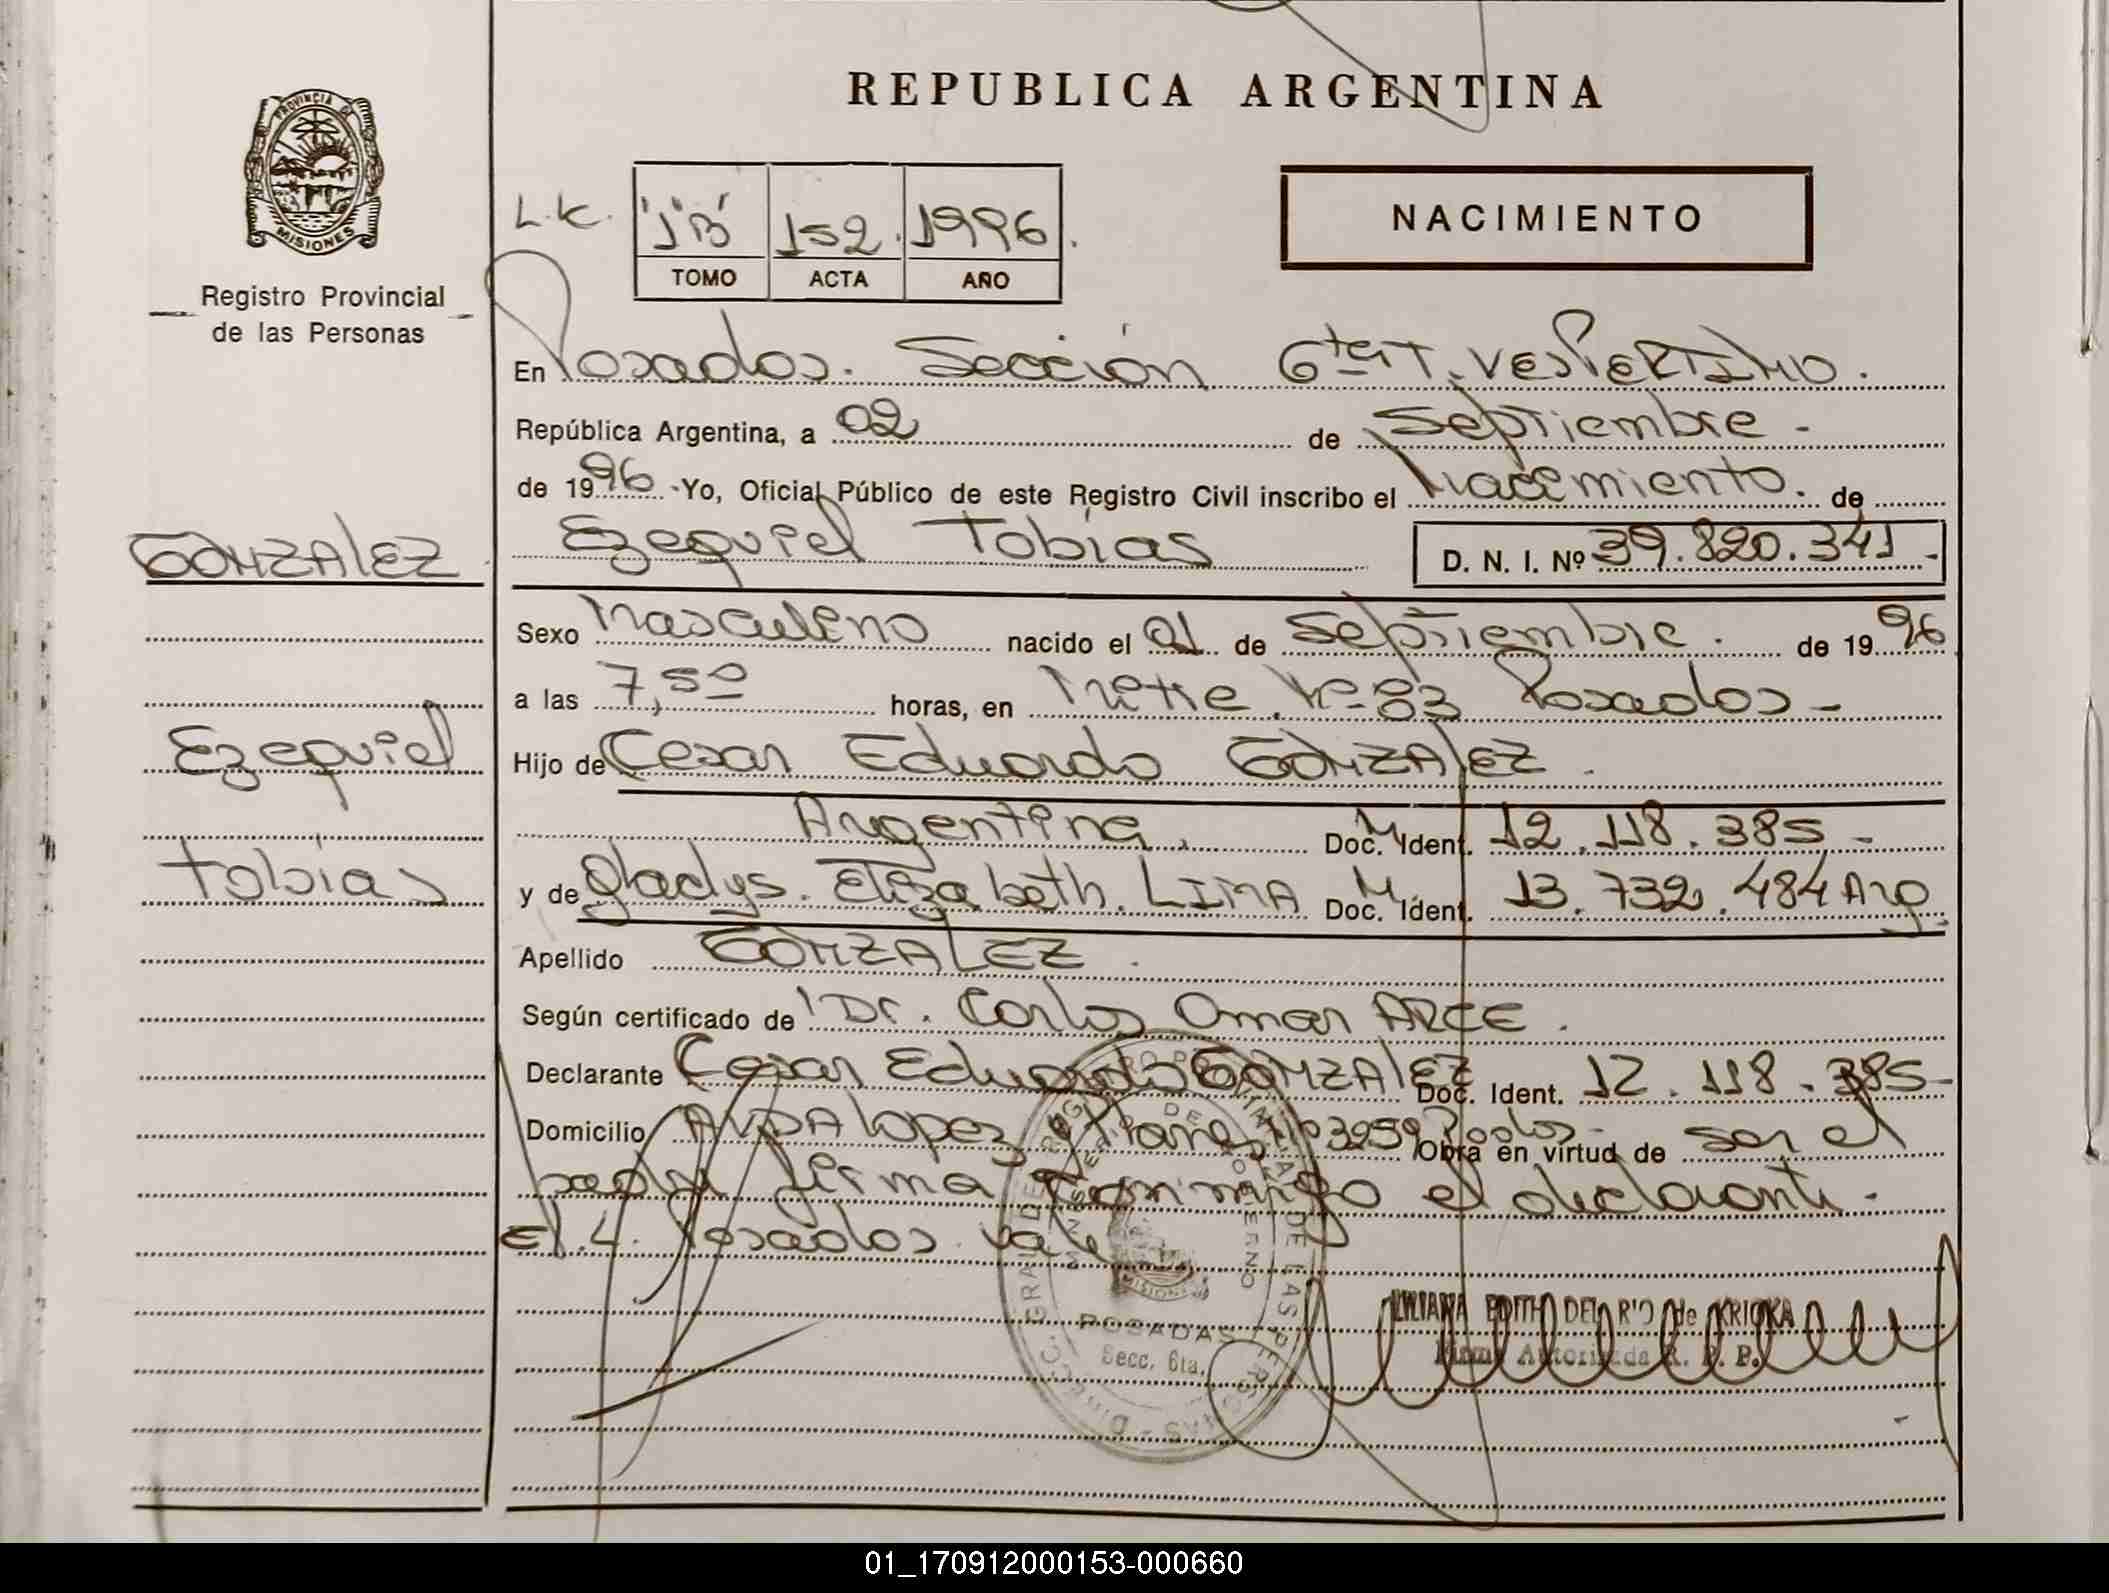 REPUBLICA ARGENTINA
PROVINCIA DE
MISIONES
Registro Provincial
de las Personas
L.K. "1B" 152. 1996.
TOMO ACTA AÑO
NACIMIENTO
En Posadas. Sección 6ta T. VESPERTINO.
República Argentina, a 02 de Septiembre -
de 1996 - Yo, Oficial Público de este Registro Civil inscribo el Nacimiento. de
GONZALEZ
Ezequiel Tobias D. N. I. Nº 39.820.341 -
Sexo Masculino nacido el 01 de Septiembre. de 1996
a las 7,50 horas, en Nº 83 Posadas -
Ezequiel
Hijo de Cesar Eduardo GONZALEZ.
Argentina, Doc. M. Ident. 12.118.385 -
Tobias
y de Gladys. Elizabeth. LIMA Doc. M. Ident. 13.732.484 Arg.
Apellido GONZALEZ.
Según certificado de Dr. Carlos Omar ARCE.
Declarante Cesar Eduardo GONZALEZ Doc. Ident. 12.118.385 -
Domicilio AVDA Lopez y Planes Nº 3259 Obra en virtud de ser el
padre firma conmigo el declarante.
E/.L. Posadas. vale
POSADAS
Secc. 6ta.
LILIANA EDITH DEL RIO de
Firma Autorizada R. P. P.
01_170912000153-000660